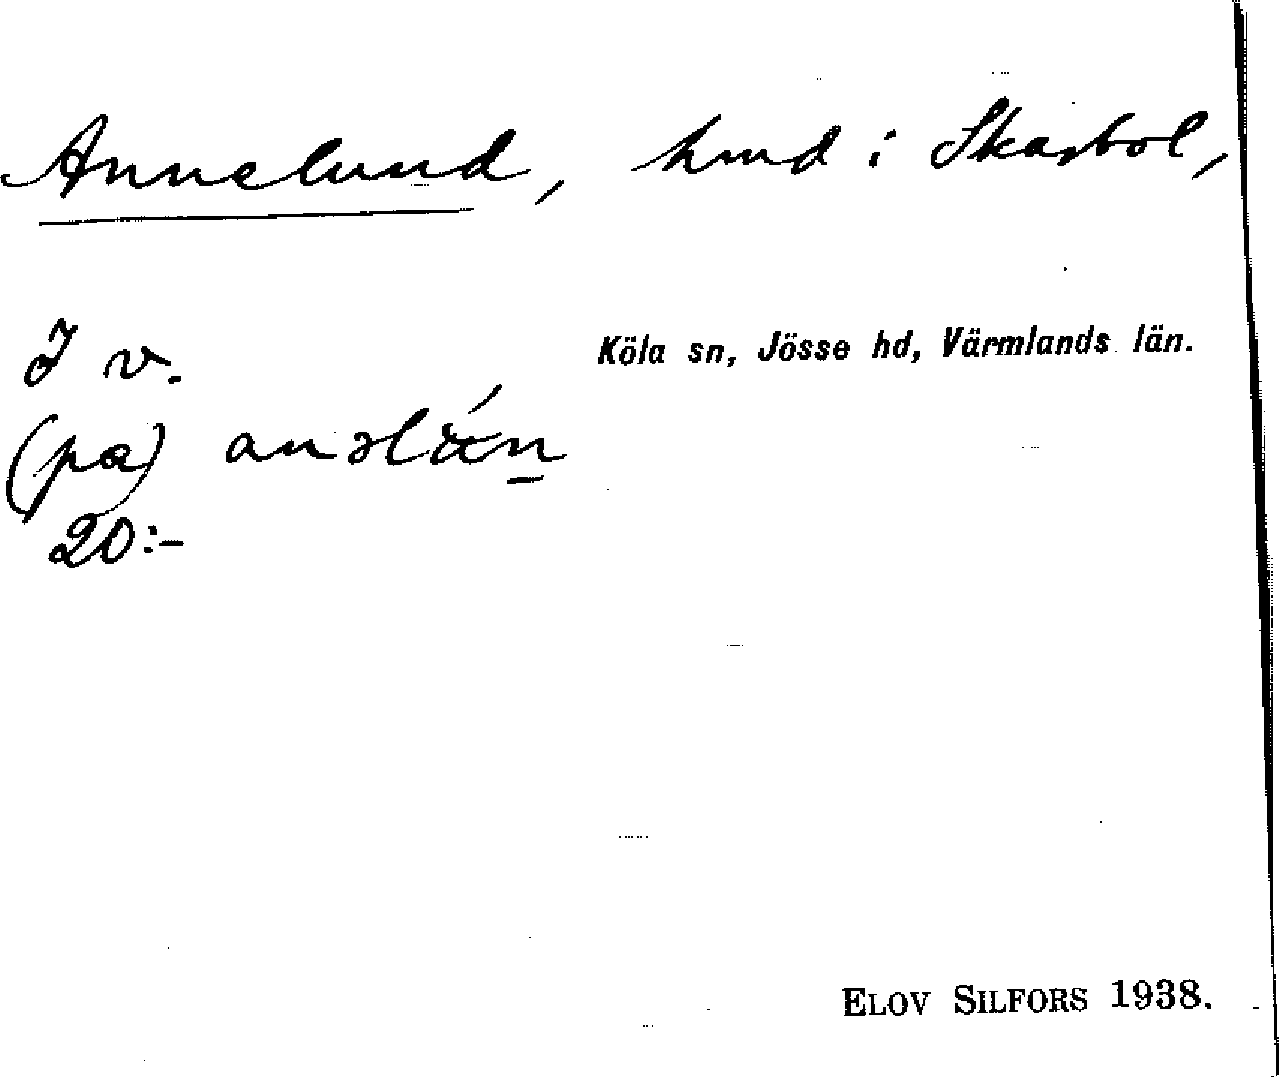 Annelund, hmd i Skarbol,
Köla sn, Jösse hd, Värmlands län.
I v.
(pa) anəlún
20:-
ELOV SILFORS 1938.